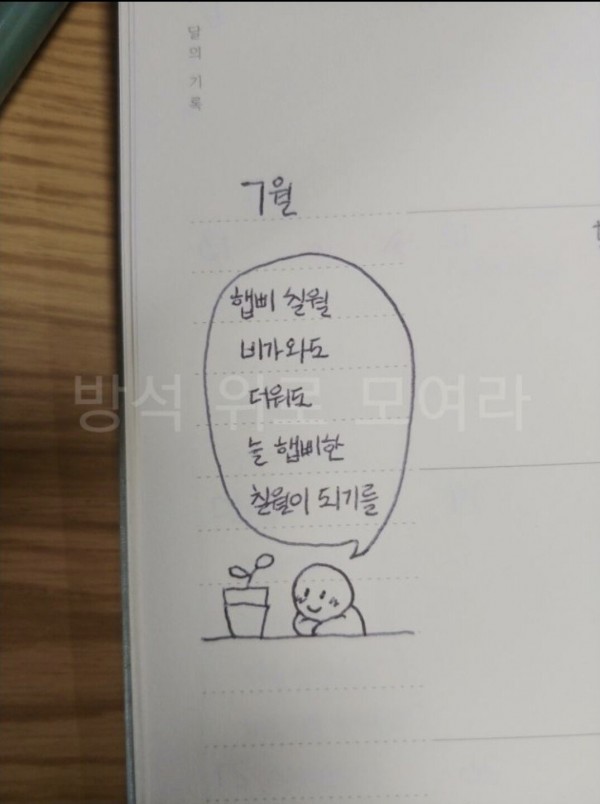 달의 기록
7월
햅삐 칠월
비가와도
더워도
늘 햅삐한
칠월이 되기를
방석 위로 모여라